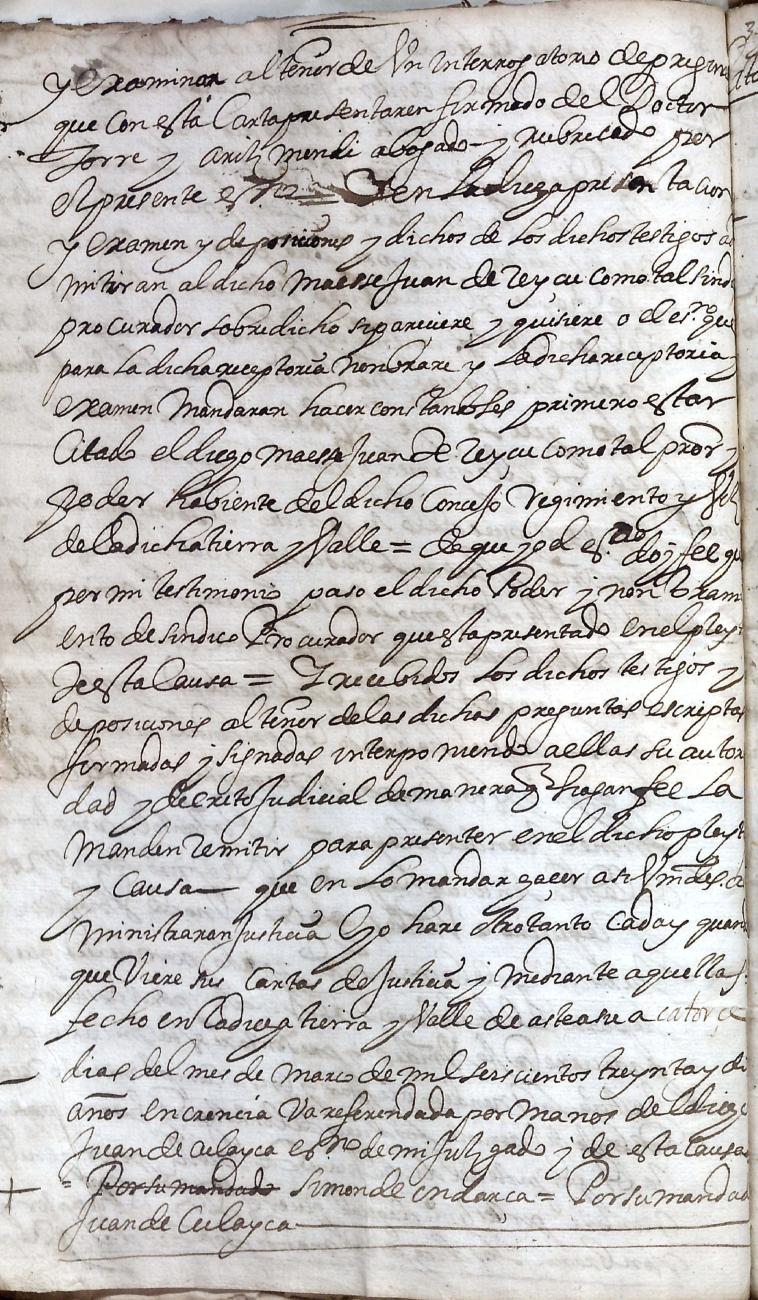 y examinar al tenor de Vn interrogatorio de pregun
que con esta Carta presentaren firmado del Doctor
Torre y arizmendi abogado y rubricado por
el presente essno = Y en la dicza presentacion
y examen y deposiciones y dichos de los dichos testigos ad
mitiran al dicho maesse Juan de reycu como tal sindi
procurador sobre dicho si pareciere y quisiere o el esno que
para la dicha receptoria nonbrare y la dicha receptoria y
examen mandaran hacer constandoles primero estar
Citado el diczo maesse Juan de reycu como tal pror y
poder habiente del dicho Concejo regimiento y
de la dicha tierra y Valle = de que yo el esno doy fee que
por mi testimonio paso el dicho Poder y nonbram
iento de sindico Procurador que esta presentado en el pleyt
de esta Causa = Y recebidos los dichos testigos y
deposiciones al tenor de las dichas preguntas escriptas
firmadas y signadas interponiendo a ellas su autori
dad y decreto Judicial de manera q hagan fee La
manden remitir para presentar en el dicho pleyt
y Causa que en lo mandar hacer asi Vmdes ad
ministraran Justicia Yo hare otro tanto Cada y quand
que Viere sus Cartas de Justicia y mediante aquella
fecho en la dicza tierra y Valle de asteasu a catorce
dias del mes de março de mil seiscientos treynta y
años en crencia Va referendada por manos del diczo
Juan de Culayca esno de mi Juzgado y de esta Causa
= Por su mandado Simon de endarça = Por su mandad
Juan de Culayca